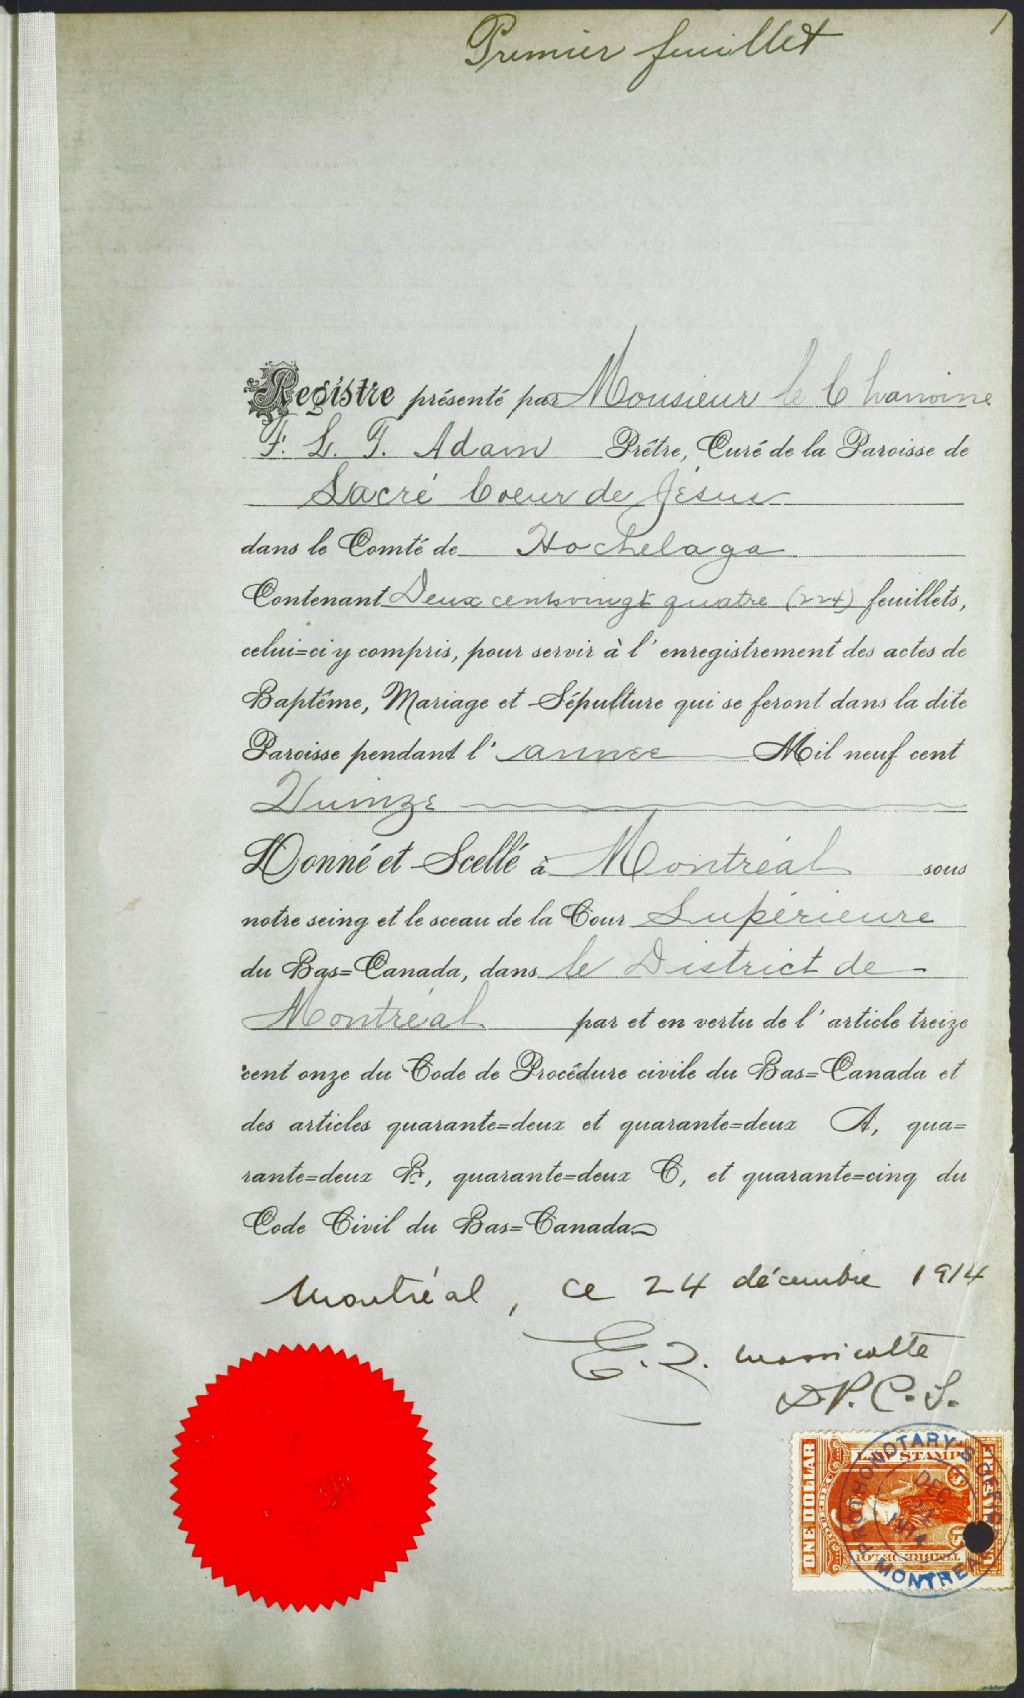 1
Premier feuillet
Registre présenté par Monsieur le Chanoine
F. L. T. Adam Prêtre, Curé de la Paroisse de
Sacré Coeur de Jésus
dans le Comté de Hochelaga
Contenant Deux cent vingt quatre (224) feuillets,
celui=ci y compris, pour servir à l'enregistrement des actes de
Baptême, Mariage et Sépulture qui se feront dans la dite
Paroisse pendant l'année Mil neuf cent
Quinze
Donné et Scellé à Montréal sous
notre seing et le sceau de la Cour Supérieure
du Bas=Canada, dans le District de
Montréal par et en vertu de l'article treize
cent onze du Code de Procédure civile du Bas=Canada et
des articles quarante=deux et quarante=deux A, qua=
rante=deux B, quarante=deux C, et quarante=cinq du
Code Civil du Bas=Canada
Montréal, ce 24 décembre 1914
E. Z. Massicotte
D. P. C. S.
PROTHONOTARY'S OFFICE
DEC
1914
MONTREAL
ONE DOLLAR
LAW STAMP
QUEBEC
UNE PIASTRE